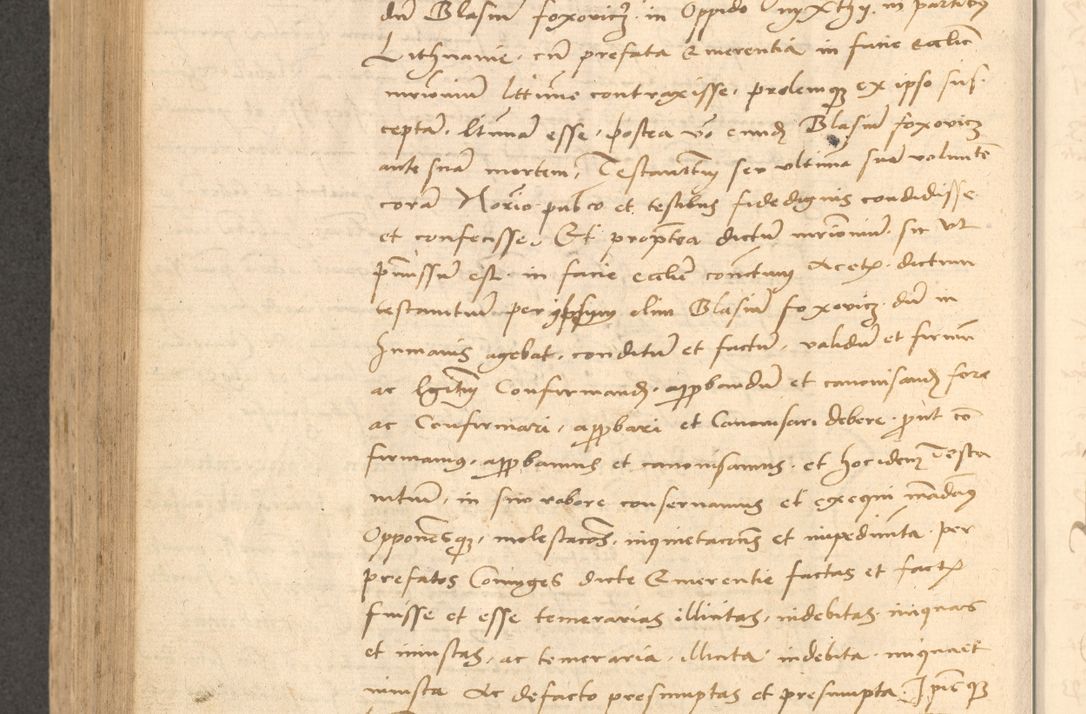 dm̄ Blasiū foxovicz in Oppido nyxthy in partibus
Lithuanie, cū prefata Emerentia in facie ecclie
mrimoniū lttime contraxisse, prolemq; ex ipso sus
ceptā, ltimā esse, postea vo eundē Blasiū foxovicz
ante suā mortem, Testamētū seu ultimā suā volutē
corā Norio publico et testibus fidedignis condidisse
et confecisse. Et propterea dictū mrimoniū sic ut
pmissū est in facie ecclie dictum
testamtum per ipsum olim Blasiū foxovicz dū in
humanis agebat, conditū et factū, validū et firmū
ac legitimū Confirmandū, approbandū et canonisandū fore
ac Confirmari, approbari et Canonisari debere prout con
firmamus, approbamus et canonisamus, et hocidem Testa
mtum, in suo robore conservamus et exequi mādamus
Opponesq;, molestacoes, inquietacoes et impedimta per
prefatos Coniuges dicte Emerentie factas et facta
fuisse et esse temerarias illicitas, indebitas, iniquas
et iniustas, ac temeraria, illicita indebita, iniqua et
iniusta ac defacto presumptas et presumpta. Ipsisq;